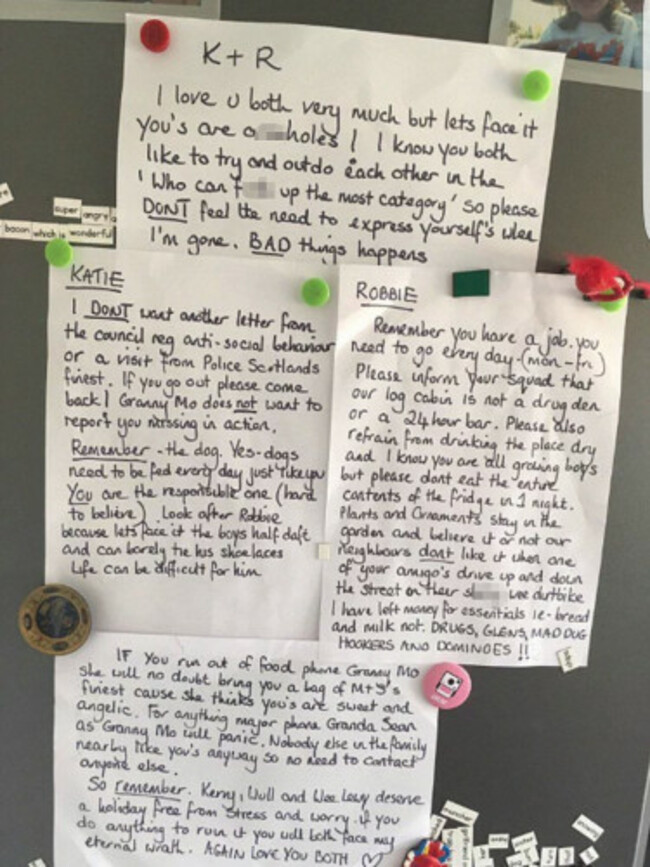 K + R
I love u both very much but lets face it
you's are a holes ! I know you both
like to try and outdo each other in the
'Who can f up the most category' so please
DONT feel the need to express yourself's when
I'm gone. BAD things happens
super angry a
bacon which is wonderful
KATIE
I DONT want another letter from
the council reg anti-social behaviour
or a visit from Police Scotlands
finest. If you go out please come
back! Granny Mo does not want to
report you missing in action.
Remember - the dog. Yes-dogs
need to be fed every day just like you
You are the responsible one (hard
to believe). Look after Robbie
because lets face it the boys half daft
and can barely tie his shoelaces
Life can be difficult for him
ROBBIE
Remember you have a job. you
need to go every day-(mon-fri)
Please inform your squad that
our log cabin is not a drug den
or a 24 hour bar. Please also
refrain from drinking the place dry
and I know you are all growing boys
but please dont eat the entire
contents of the fridge in 1 night.
Plants and Ornaments stay in the
garden and believe it or not our
neighbours dont like it when one
of your amigo's drive up and down
the street on their s wee dirtbike
I have left money for essentials ie-bread
and milk not. DRUGS, GLENS, MAD DUG
HOOKERS AND DOMINOES !!
IF you run out of food phone Granny Mo
she will no doubt bring you a bag of M+S's
finest cause she thinks you's are sweet and
angelic. For anything major phone Granda Sean
as Granny Mo will panic. Nobody else in the family
nearby like you's anyway so no need to contact
anyone else.
So remember. Kerry, Wull and Wee Lewy deserve
a holiday free from stress and worry. if you
do anything to ruin it you will both face my
eternal wrath. AGAIN LOVE YOU BOTH